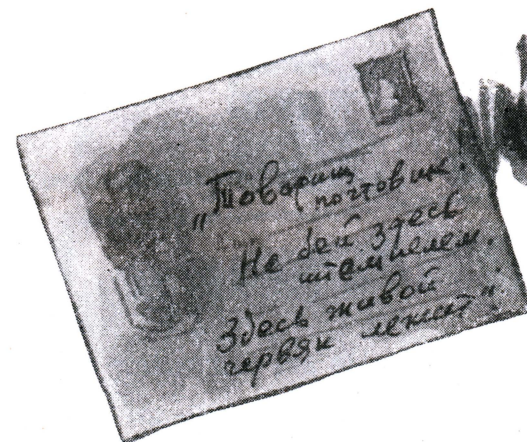 „Товарищ
почтовик.
Не бей здесь
штемпелем.
Здесь живой
червяк лежит".